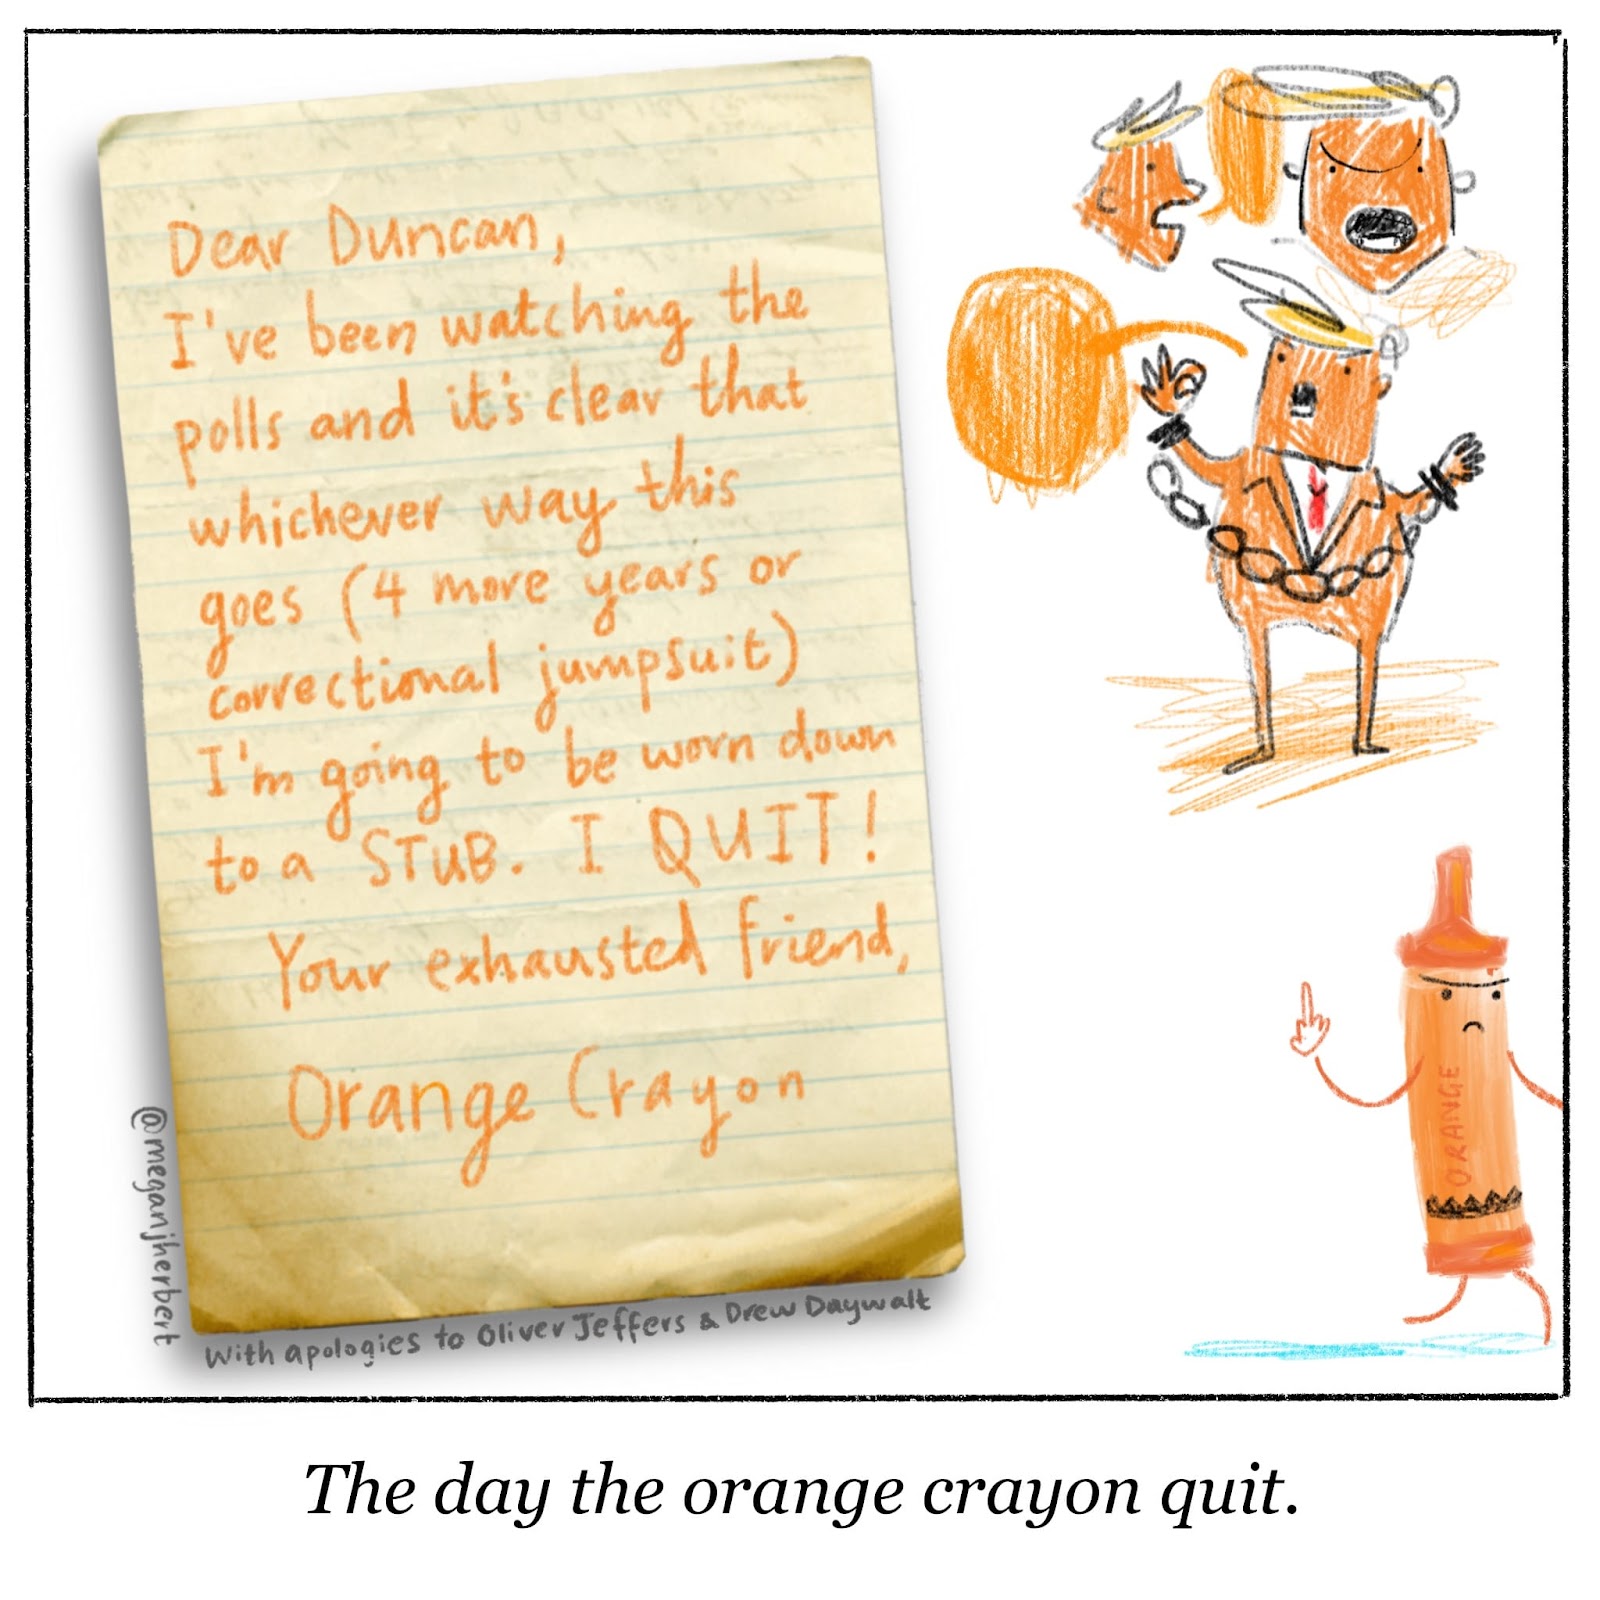 Dear Duncan,
I've been watching the
polls and it's clear that
whichever way this
goes (4 more years or
correctional jumpsuit)
I'm going to be worn down
to a STUB. I QUIT!
Your exhausted friend,
Orange Crayon
@meganjherbert
With apologies to Oliver Jeffers & Drew Daywalt
ORANGE
The day the orange crayon quit.